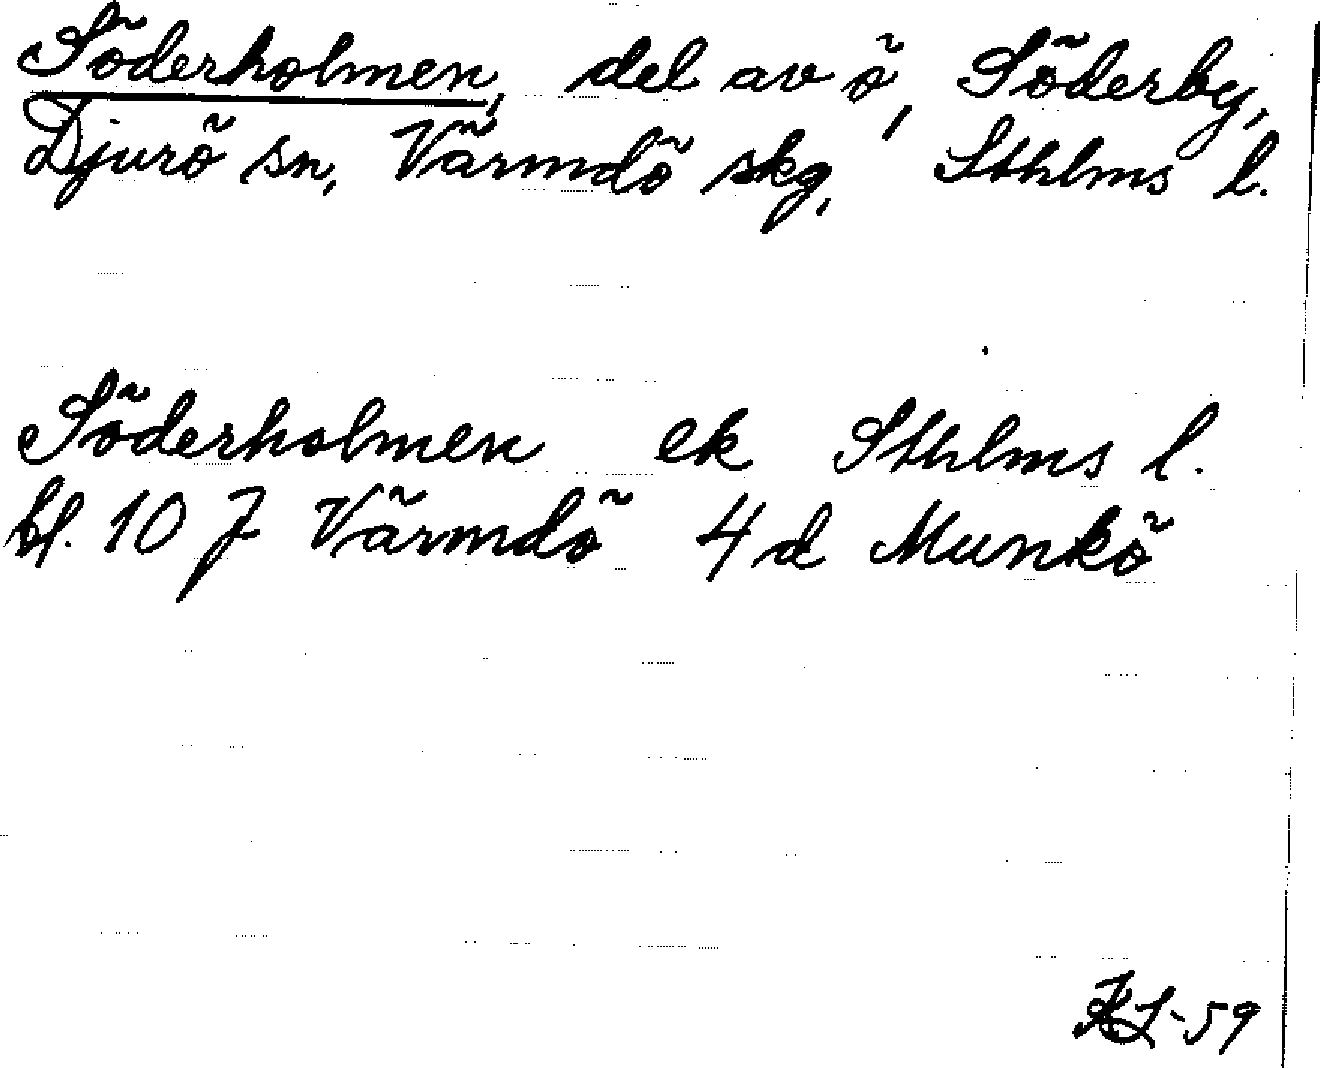 Söderholmen, del av ö, Söderby,
Djurö sn, Värmdö skg, Sthlms l.
Söderholmen ek Sthlms l.
bl. 10 J Värmdö 4d Munkö
KL-59